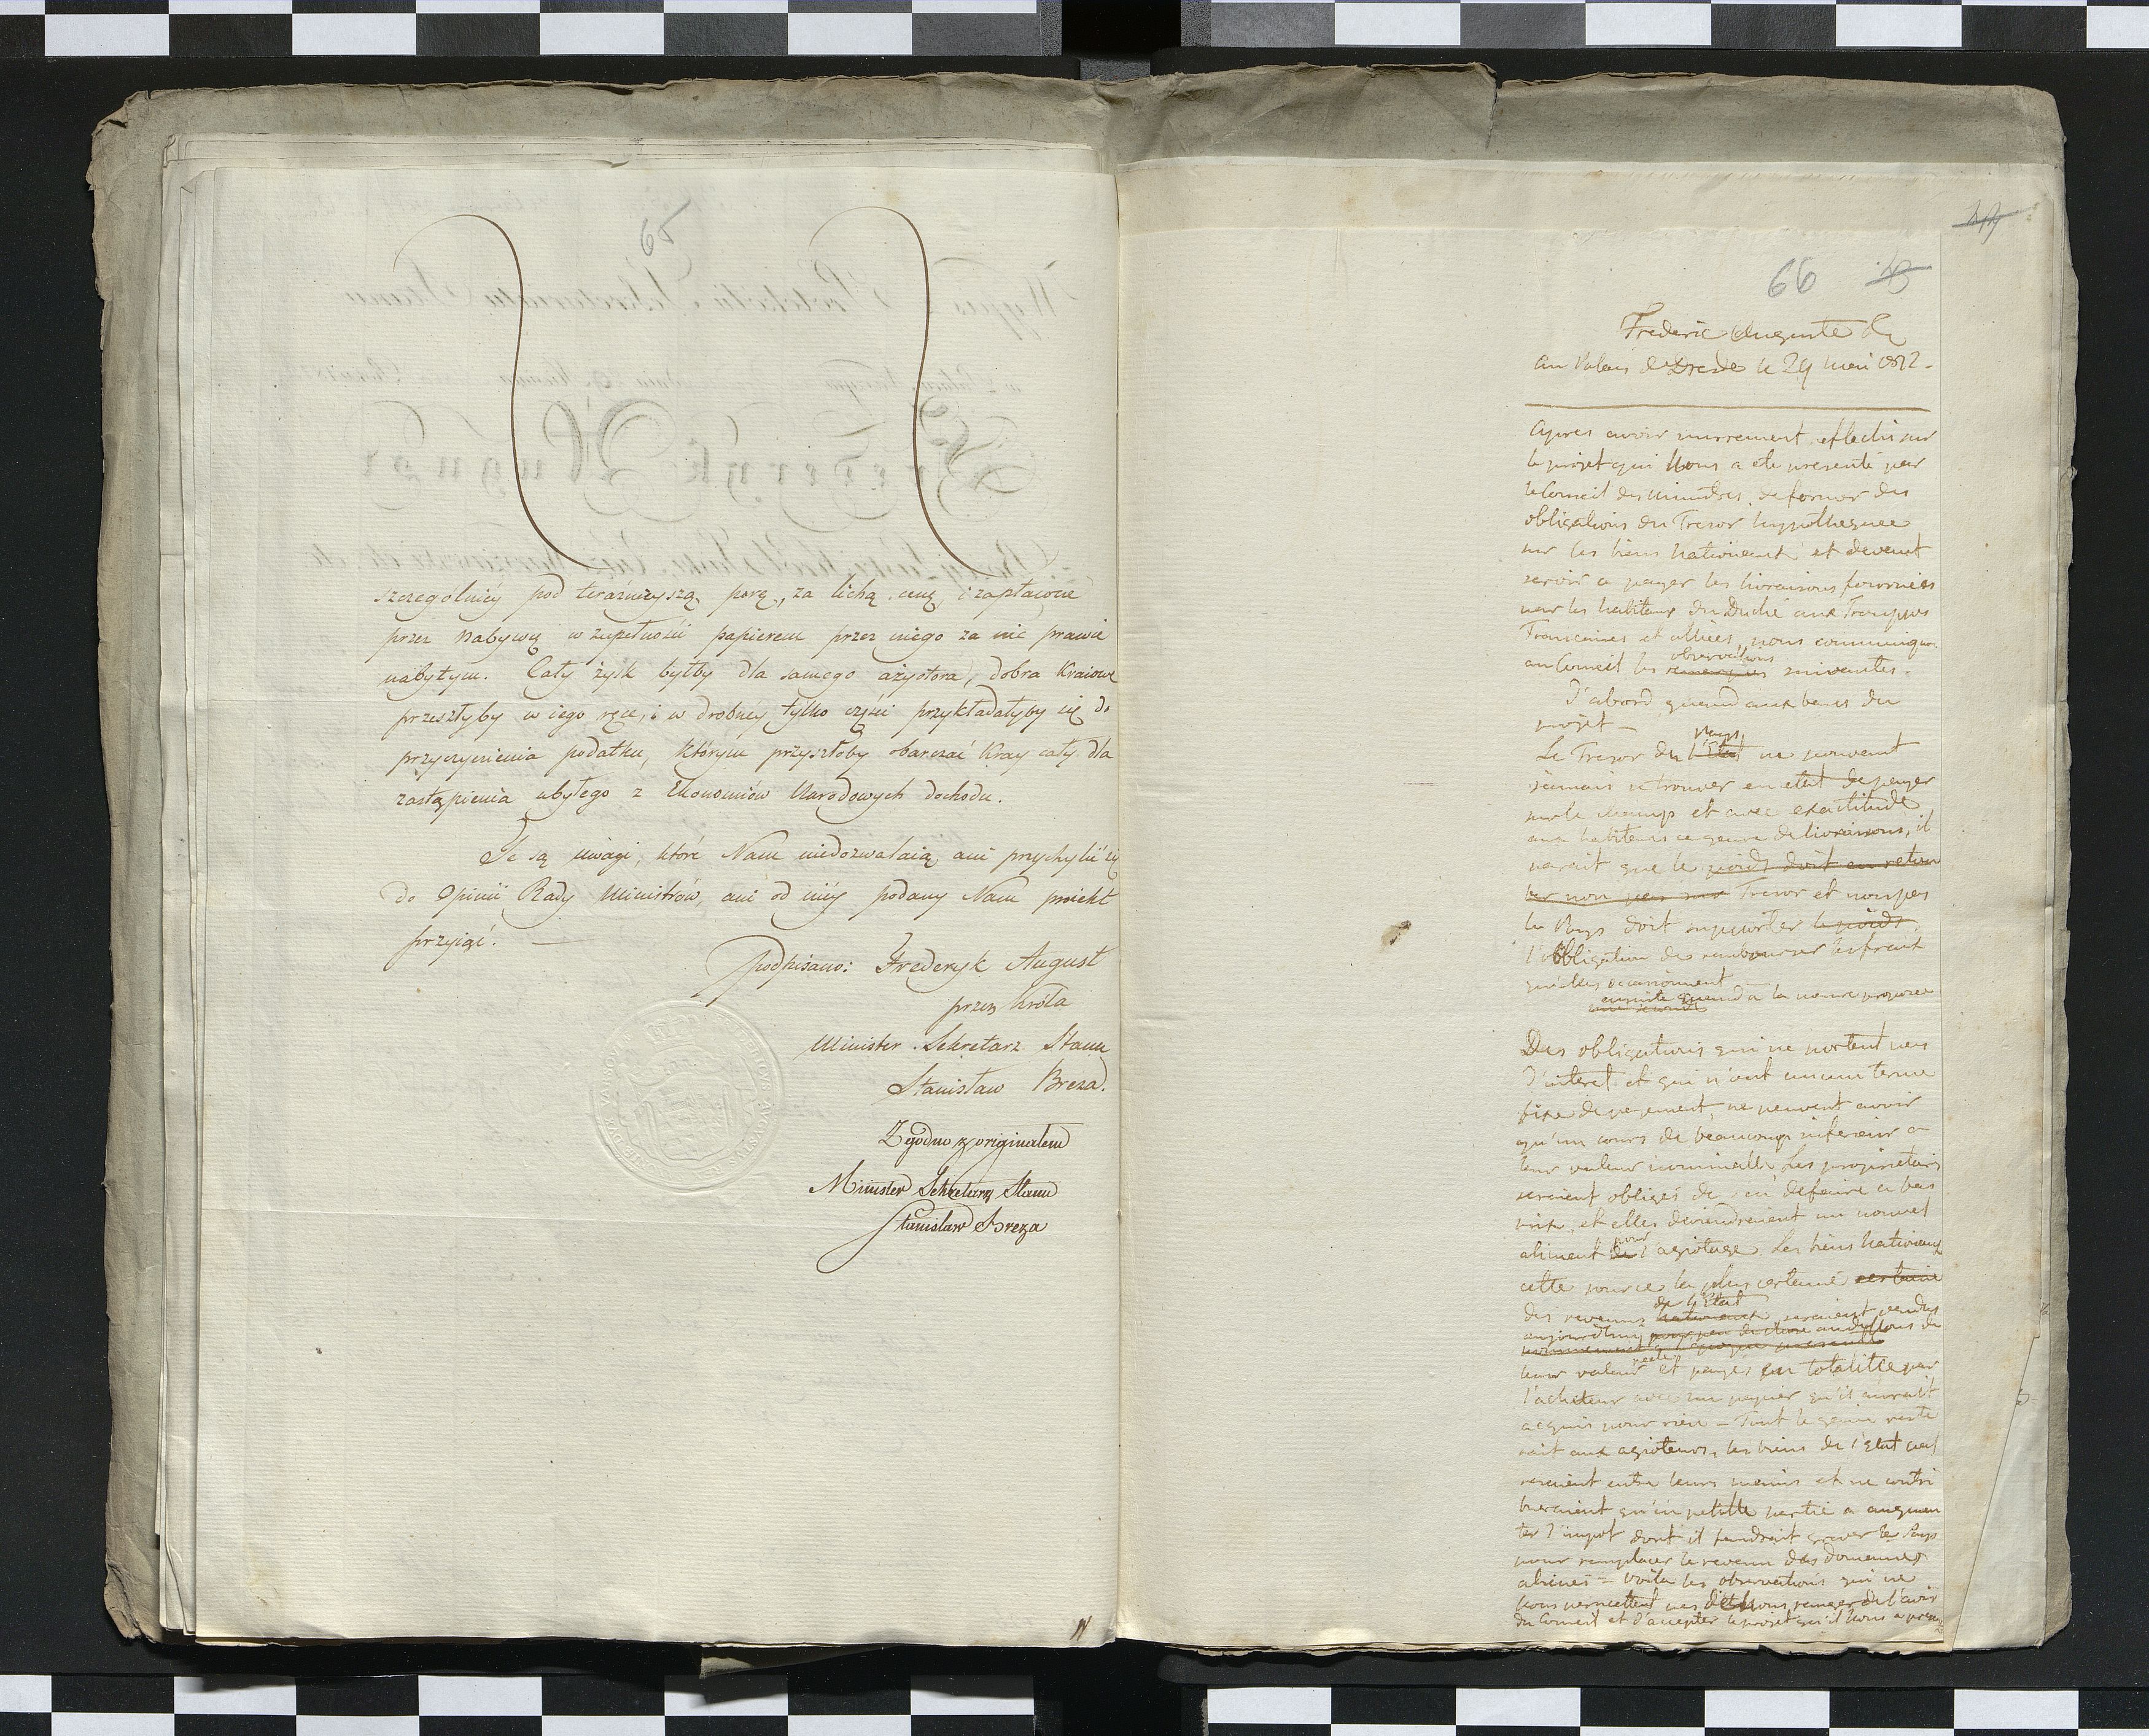 szczegolniéy pod teraźnieyszą porę, za lichą cenę, i zapłacone
przez Nabywcę w zupełności papierem przez niego za nic prawie
nabytym. Cały zysk byłby dla samego ażyotora, dobra Kraiowe
przeszłyby w iego ręce, i w drobnéy tylko części przykładałyby się do
przyczynienia podatku, którym przyszłoby obarczać Kray cały dla
zastąpienia ubyłego z Ekonomiów Narodowych dochodu.
Te są uwagi, które Nam niedozwalaią, ani przychylić się
do Opinii Rady Ministrów, ani od niéy podany Nam proiekt
przyiąć.
Podpisano: Frederyk August
przez Króla
Minister Sekretarz Stanu
Stanisław Breza.
Zgodno z originałem
Minister Sekretarz Stanu
Stanisław Breza
66
Frederic Auguste &
au Palais de Dresde le 29 mai 1812.
Apres avoir murement reflechi sur
le projet qui Nous a ete presenté par
le Conseil des Ministres, de former des
obligations du Tresor hypothequée
sur les biens Nationaux et devant
servir a payer les livraisons fournies
par les habitans du Duché aux Trouppes
Francaises et alliées, nous communiquons
au Conseil les remarques observations suivantes.
D'abord quand aux bases du
projet —
Le Tresor du l'Etat Pays ne pouvant
jamais se trouver en etat de payer
sur le champ et avec exactitude
aux habitans ce genre de livraisons, il
parait que le poids doit en retom
ber non pas sur Tresor et non pas
le Pays doit supporter le poids
l'obligation de rembourser les fraix
qu'elles occasionnent
ensuite quand a la nature proposée
Des obligations qui ne portent pas
d'interet et qui n'ont aucun terme
fixe de payement, ne peuvent avoir
qu'un cours de beaucoup inferieur a
leur valeur nominale. Les proprietaires
seraient obligés de s'en defaire a bas
prix, et elles deviendraient un nouvel
aliment de pour l'agiotage. Les biens Nationaux
cette source la plus certaine certaine
des revenus nationaux de l'Etat seraient vendus
aujourdhuy au dessous de
leur valeur réelle et payés en totalitée par
l'acheteur avec un papier qu'il aurait
acquis pour rien — Tout le gain reste
rait aux agioteurs, les biens de l'Etat pas
seraient entre leurs mains et ne contri
bueraient qu'en petitte partie a augmen
ter l'impot dont il faudrait grever le Pays
pour remplacer le revenu des domaines
alienés — Voila les observations qui ne
Nous permettent pas de Nous ranger de l'avis
du Conseil et d'accepter le projet qu'il Nous a presenté